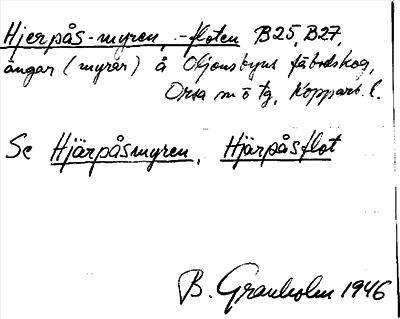 Hjerpås-myren, -floten B25, B27,
ängar (myrar) å Oljonsbyns fäbodskog,
Orsa sn ö tg, Kopparb. l.
Se Hjärpåsmyren, Hjärpåsflot
B. Granholm 1946